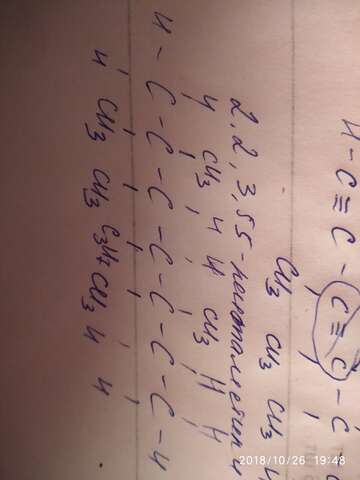 H - C ≡ C - C ≡ C - C
CH3 CH3 CH3 H
2,2,3,55-пентаметил
H CH3 H H CH3 H H
H - C - C - C - C - C - C - C - H
H CH3 CH3 C3H7 CH3 H H
2018/10/26 19:48